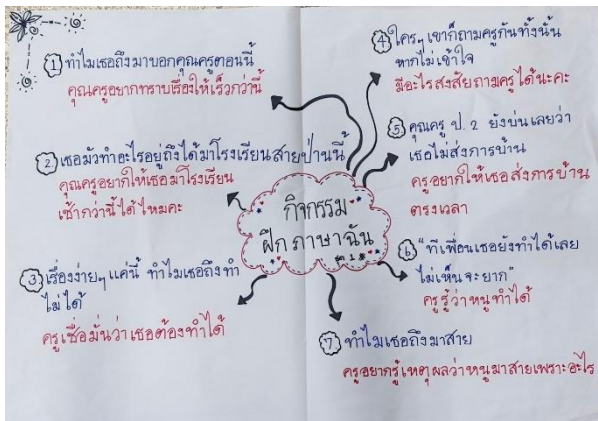 ① ทำไมเธอถึงมาบอกคุณครูตอนนี้
คุณครูอยากทราบเรื่องให้เร็วกว่านี้
② เธอมัวทำอะไรอยู่ถึงได้มาโรงเรียนสายป่านนี้
คุณครูอยากให้เธอมาโรงเรียน
เช้ากว่านี้ได้ไหมคะ
③ เรื่องง่ายๆ แค่นี้ ทำไมเธอถึงทำ
ไม่ได้
ครูเชื่อมั่นว่าเธอต้องทำได้
กิจกรรม
ฝึกภาษาฉัน
④ ใครๆ เขาก็ถามครูกันทั้งนั้น
หากไม่เข้าใจ
มีอะไรสงสัยถามครูได้นะคะ
⑤ คุณครู ป. 2 ยังบ่นเลยว่า
เธอไม่ส่งการบ้าน
ครูอยากให้เธอส่งการบ้าน
ตรงเวลา
⑥ "ทีเพื่อนเธอยังทำได้เลย
ไม่เห็นจะยาก"
ครูรู้ว่าหนูทำได้
⑦ ทำไมเธอถึงมาสาย
ครูอยากรู้เหตุผลว่าหนูมาสายเพราะอะไร